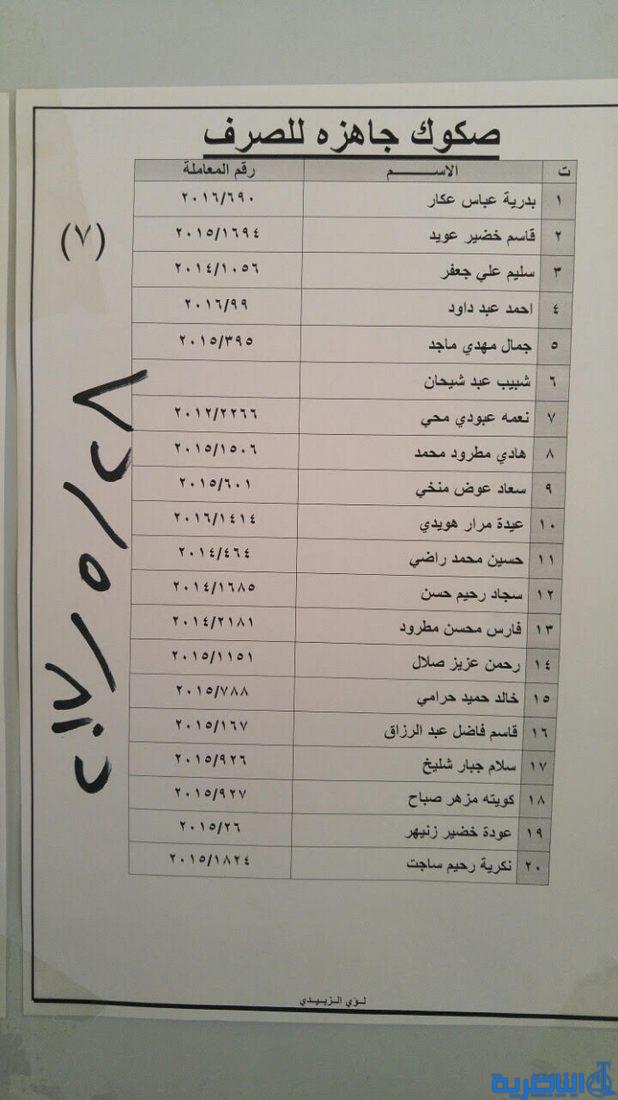 صكوك جاهزه للصرف
ت الاســـــم رقم المعاملة
١ بدرية عباس عكار ٢٠١٦/٦٩٠
٢ قاسم خضير عويد ٢٠١٥/١٦٩٤
٣ سليم علي جعفر ٢٠١٤/١٠٥٦
٤ احمد عبد داود ٢٠١٦/٩٩
٥ جمال مهدي ماجد ٢٠١٥/٣٩٥
٦ شبيب عبد شيحان
٧ نعمه عبودي محي ٢٠١٢/٢٢٦٦
٨ هادي مطرود محمد ٢٠١٥/١٥٠٦
٩ سعاد عوض منخي ٢٠١٥/٦٠١
١٠ عيدة مرار هويدي ٢٠١٦/١٤١٤
١١ حسين محمد راضي ٢٠١٤/٤٦٤
١٢ سجاد رحيم حسن ٢٠١٤/١٦٨٥
١٣ فارس محسن مطرود ٢٠١٤/٢١٨١
١٤ رحمن عزيز صلال ٢٠١٥/١١٥١
١٥ خالد حميد حرامي ٢٠١٥/٧٨٨
١٦ قاسم فاضل عبد الرزاق ٢٠١٥/١٦٧
١٧ سلام جبار شليخ ٢٠١٥/٩٢٦
١٨ كويته مزهر صباح ٢٠١٥/٩٢٧
١٩ عودة خضير زنيهر ٢٠١٥/٢٦
٢٠ نكرية رحيم ساجت ٢٠١٥/١٨٢٤
(٧)
٢٠١٧/٥/٢٨
لـؤي الـزبـيـدي
الناصرية